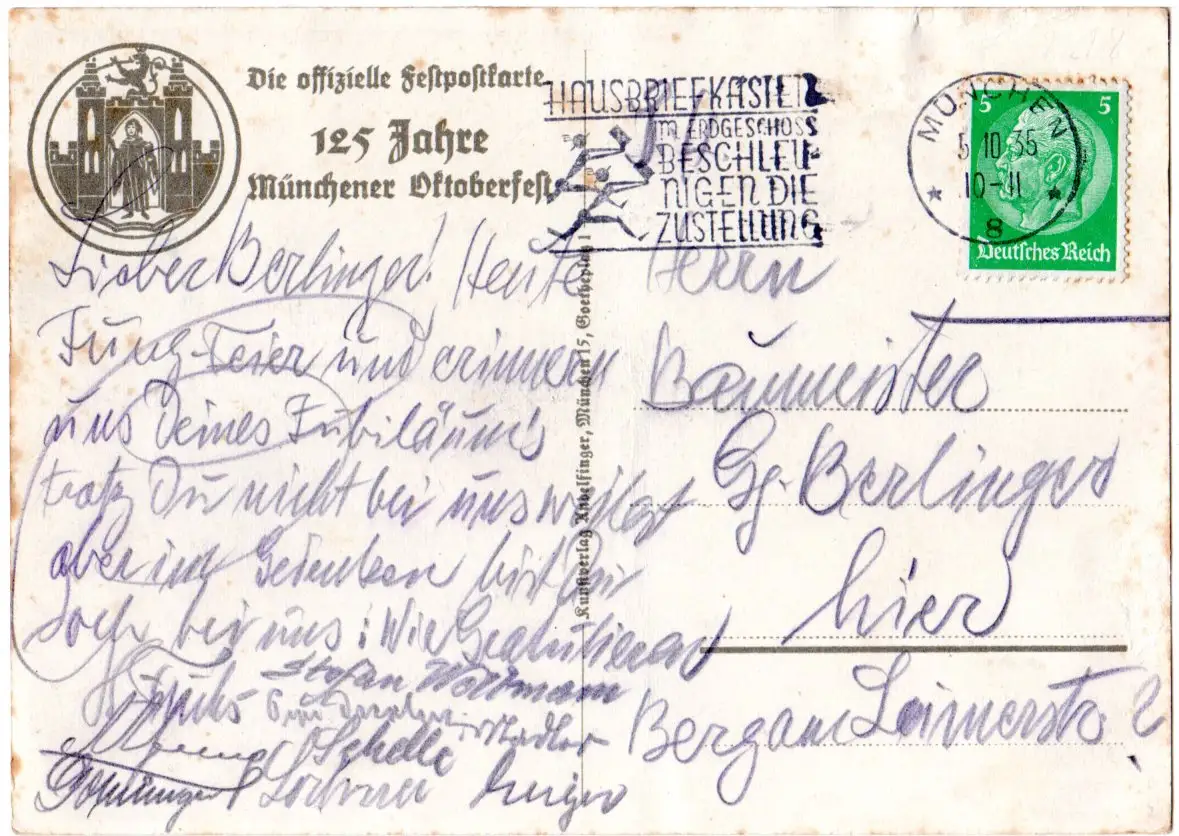 Die offizielle Festpostkarte
125 Jahre
Münchener Oktoberfest
HAUSBRIEFKÄSTEN
IM ERDGESCHOSS
BESCHLEU-
NIGEN DIE
ZUSTELLUNG
MÜNCHEN
5.10.35
10-11
8
5 5
Deutsches Reich
Lieber Berlinger! Heute
Feier und erinnern
uns Deines Jubiläums
trotz Du nicht bei uns weilest
aber im Gedenken bist Du
doch bei uns! Wir Gratulieren
Stefan
Stadler
Schelle
Kunstverlag Andelfinger, München 15, Goetheplatz 1
Herrn
Baumeister
Gg. Berlinger
hier
Berg am Laimerstr. 2